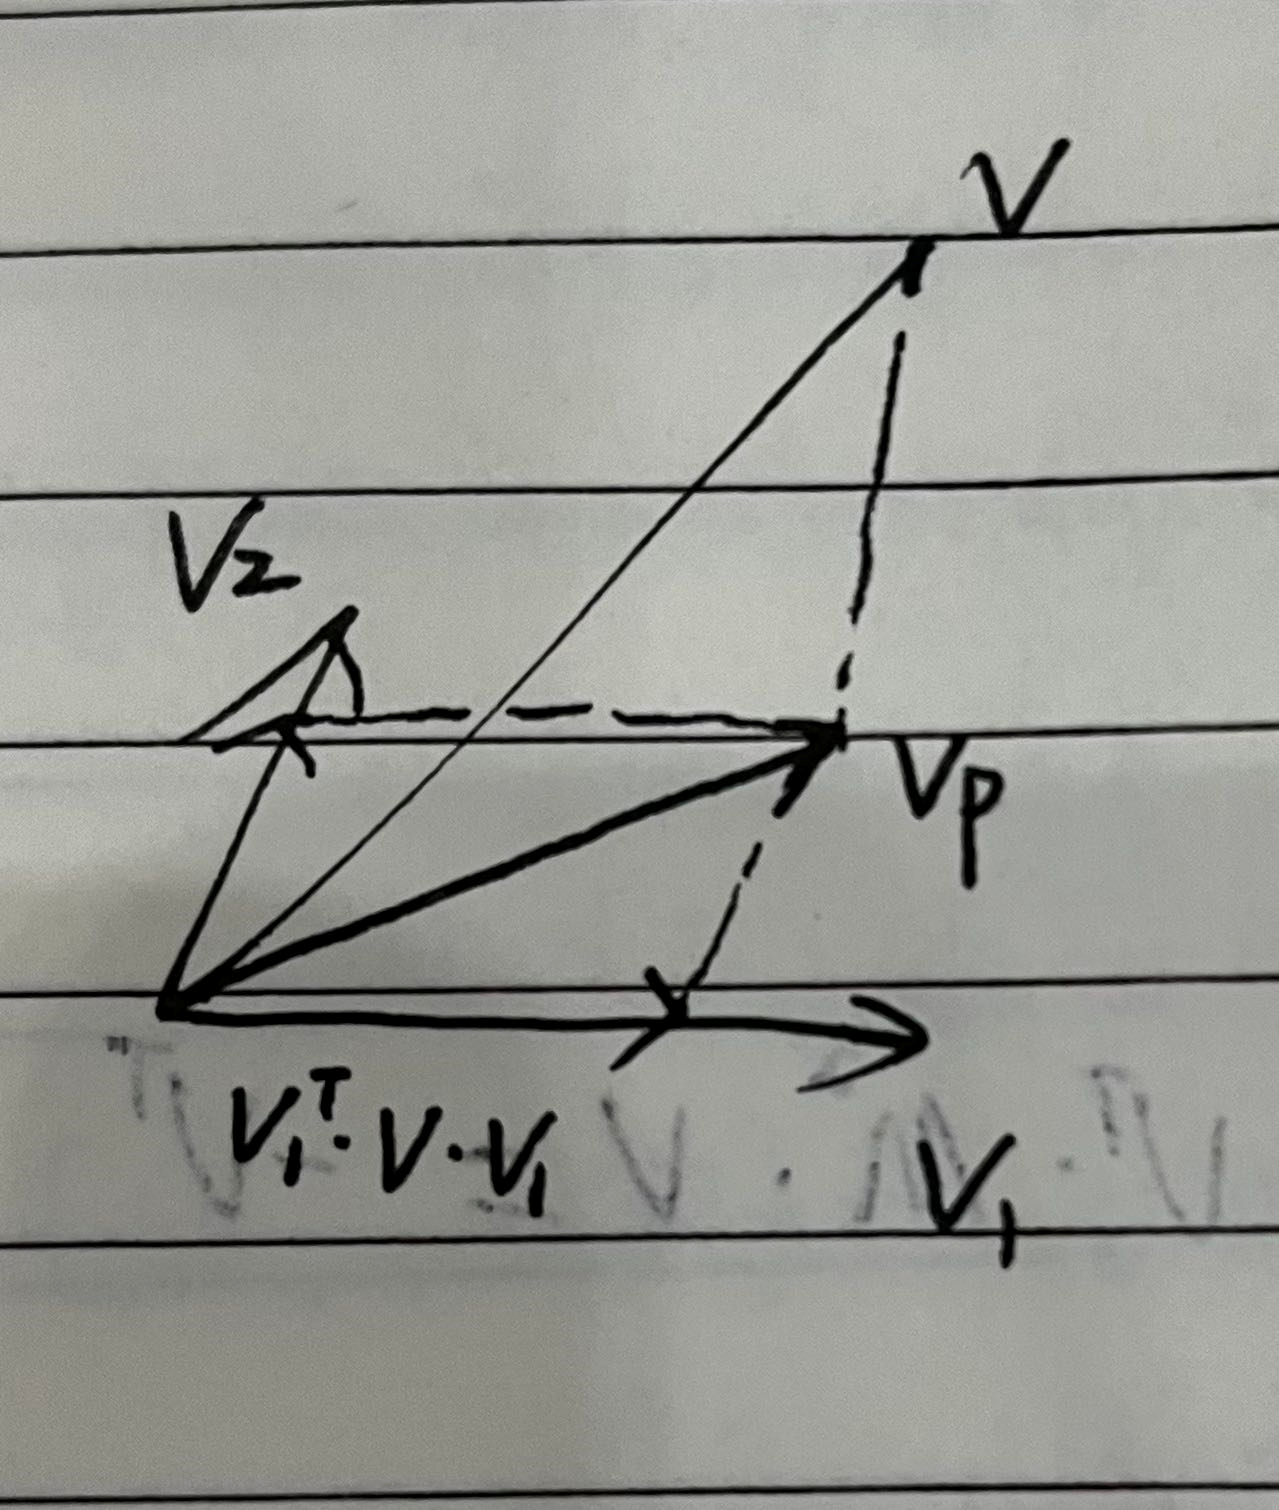 V
V2
Vp
V1^T · V · V1
V1